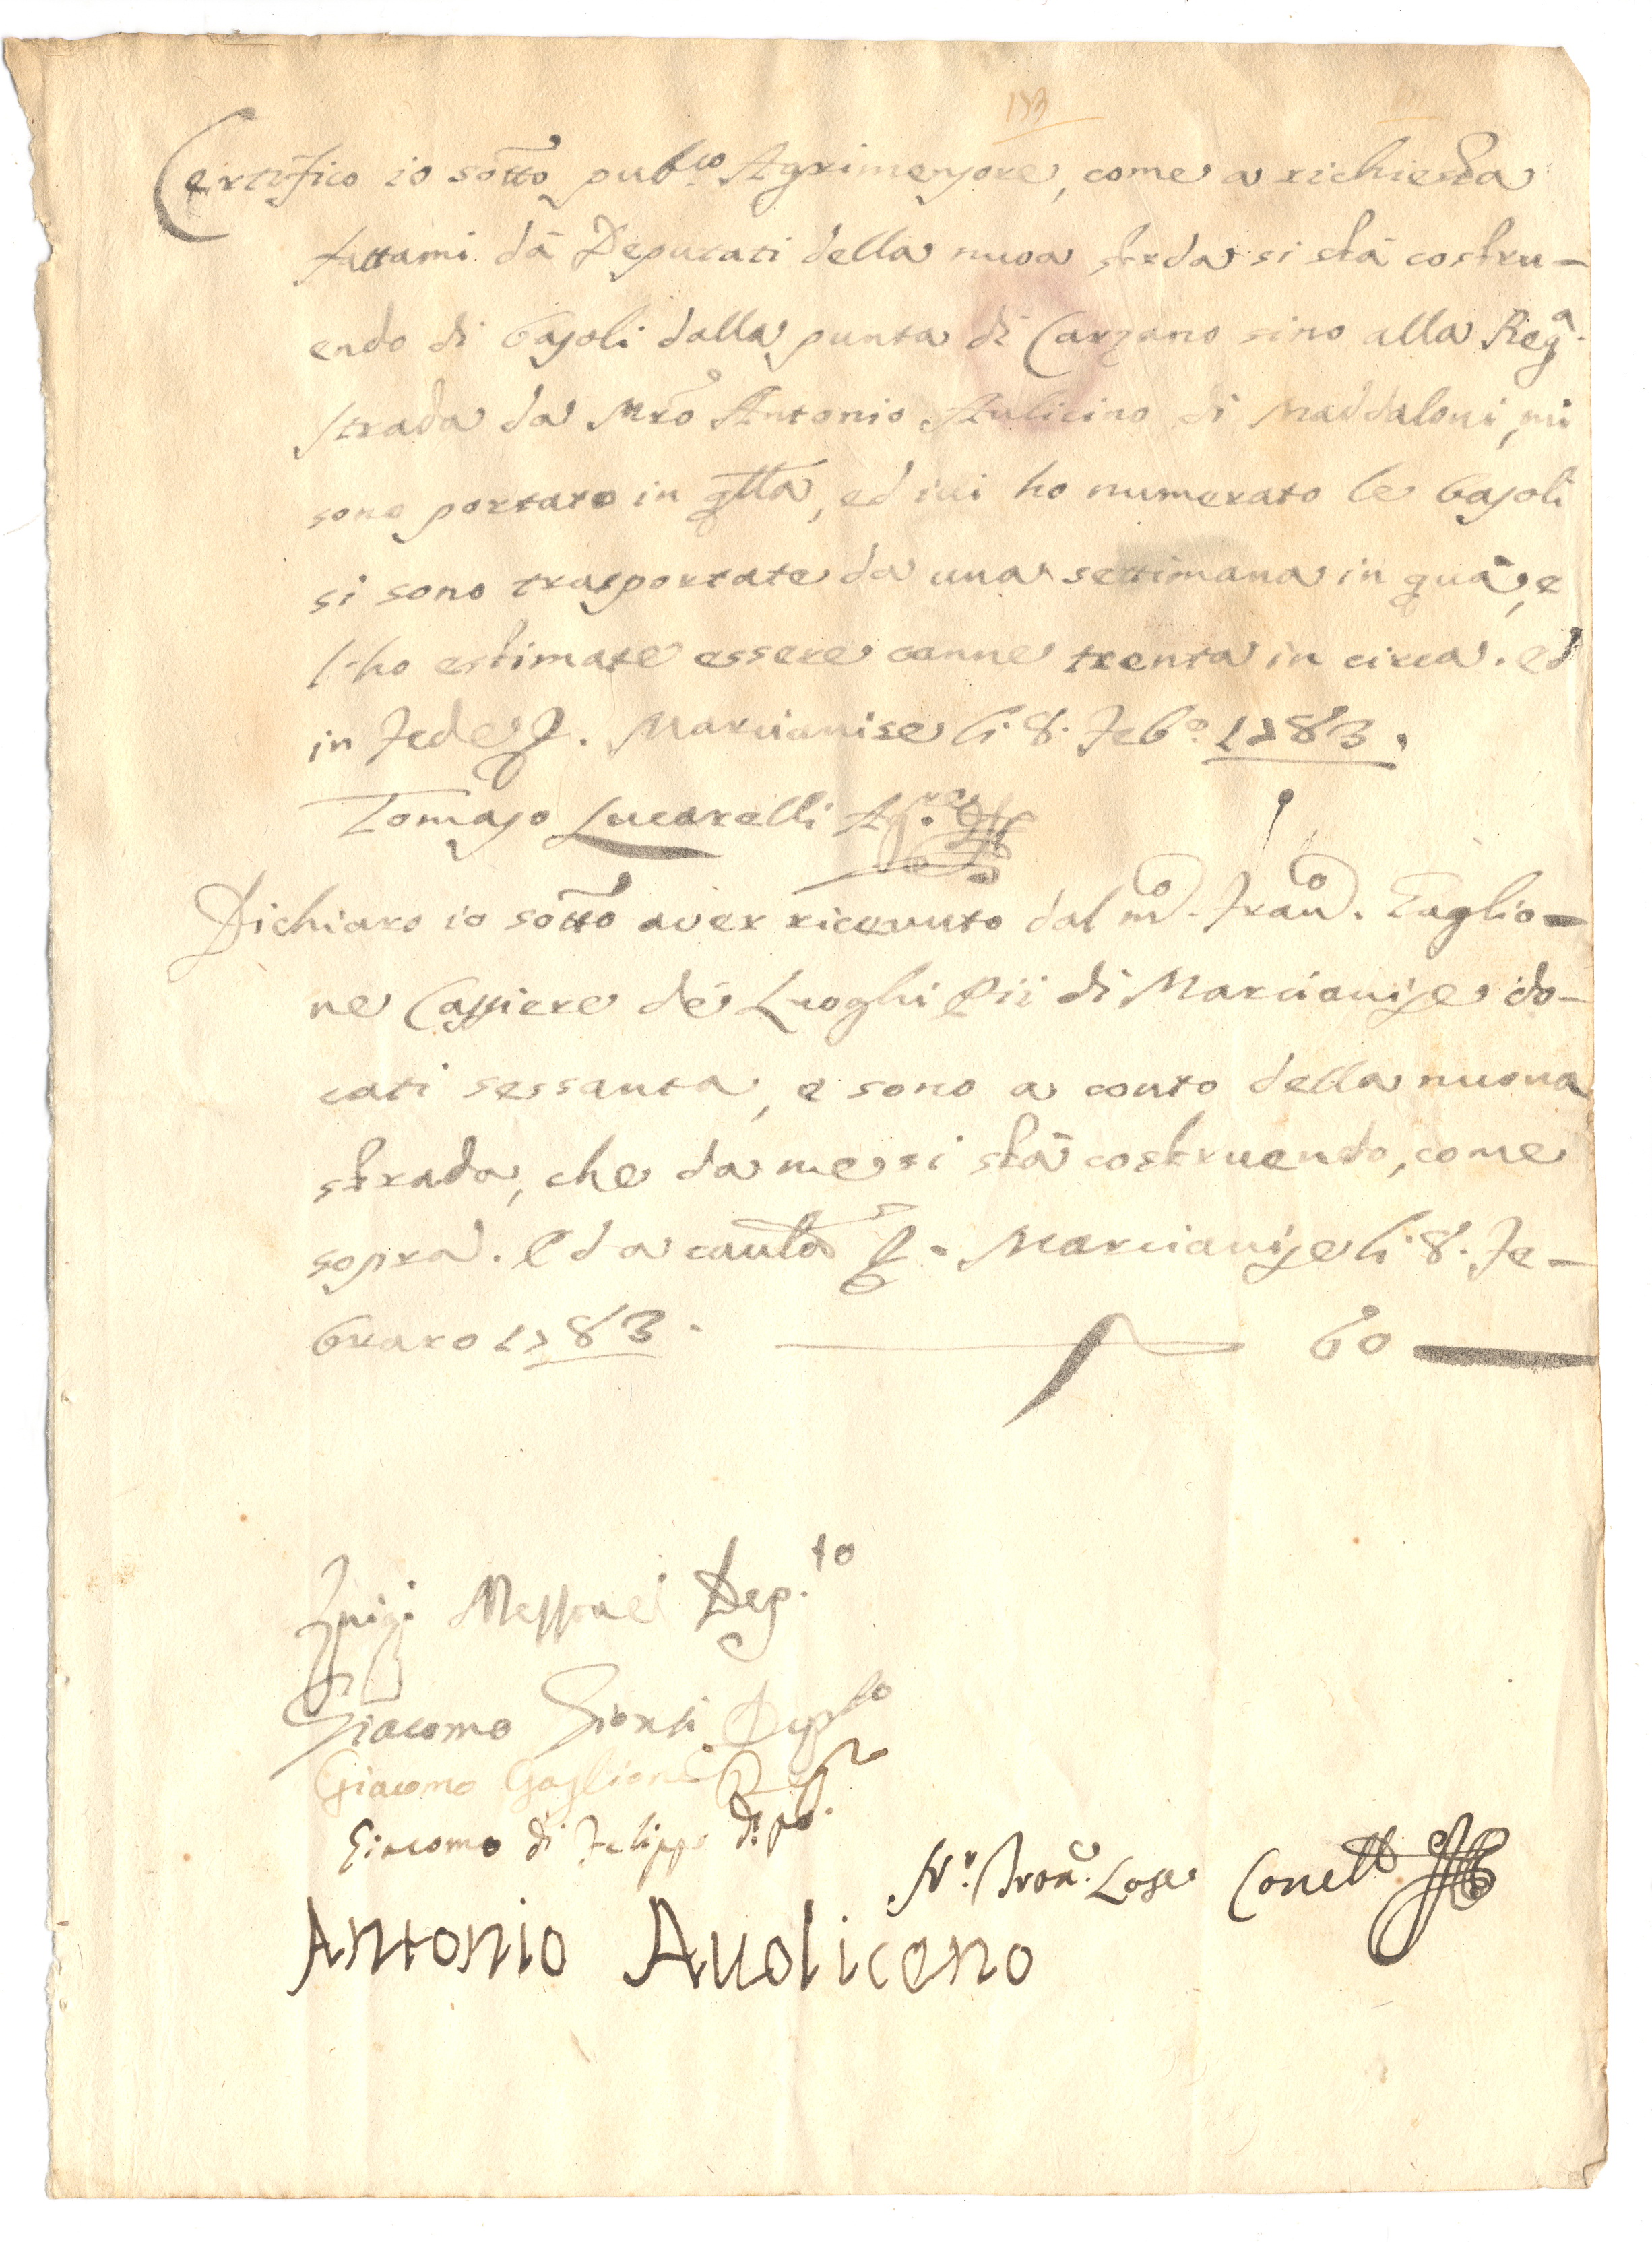 183
Certifico io sotto pub.co Agrimensore, come a richiesta
fattami dà Deputati della nuoa strda si stà costru-
endo di basoli dalla punta di Carzano sino alla Reg.a
strada da Mro Antonio Aulicino di Maddaloni, mi
sono portato in qtta, ed ivi ho numerato le basoli
si sono trasportate da una settimana in quà, e
l'ho estimate essere canne trenta in circa. ed
in fede &. Marcianise li 8. Feb.o 1783.
Tomaso Lucarelli Ag.re
Dichiaro io sotto aver ricevuto dal mo. Frano. Taglio-
ne Cassiere de' Luoghi Pii di Marcianise do-
cati sessanta, e sono a conto della nuova
strada, che da me si stà costruendo, come
sopra. Ed a cautla &. Marcianise li 8. Fe-
braro 1783. 60
Luigi Messore Dep.to
Giacomo Dep.to
Giacomo Gaglione
Giacomo di Felippo
Nr. Fran.
Antonio Auoliceno